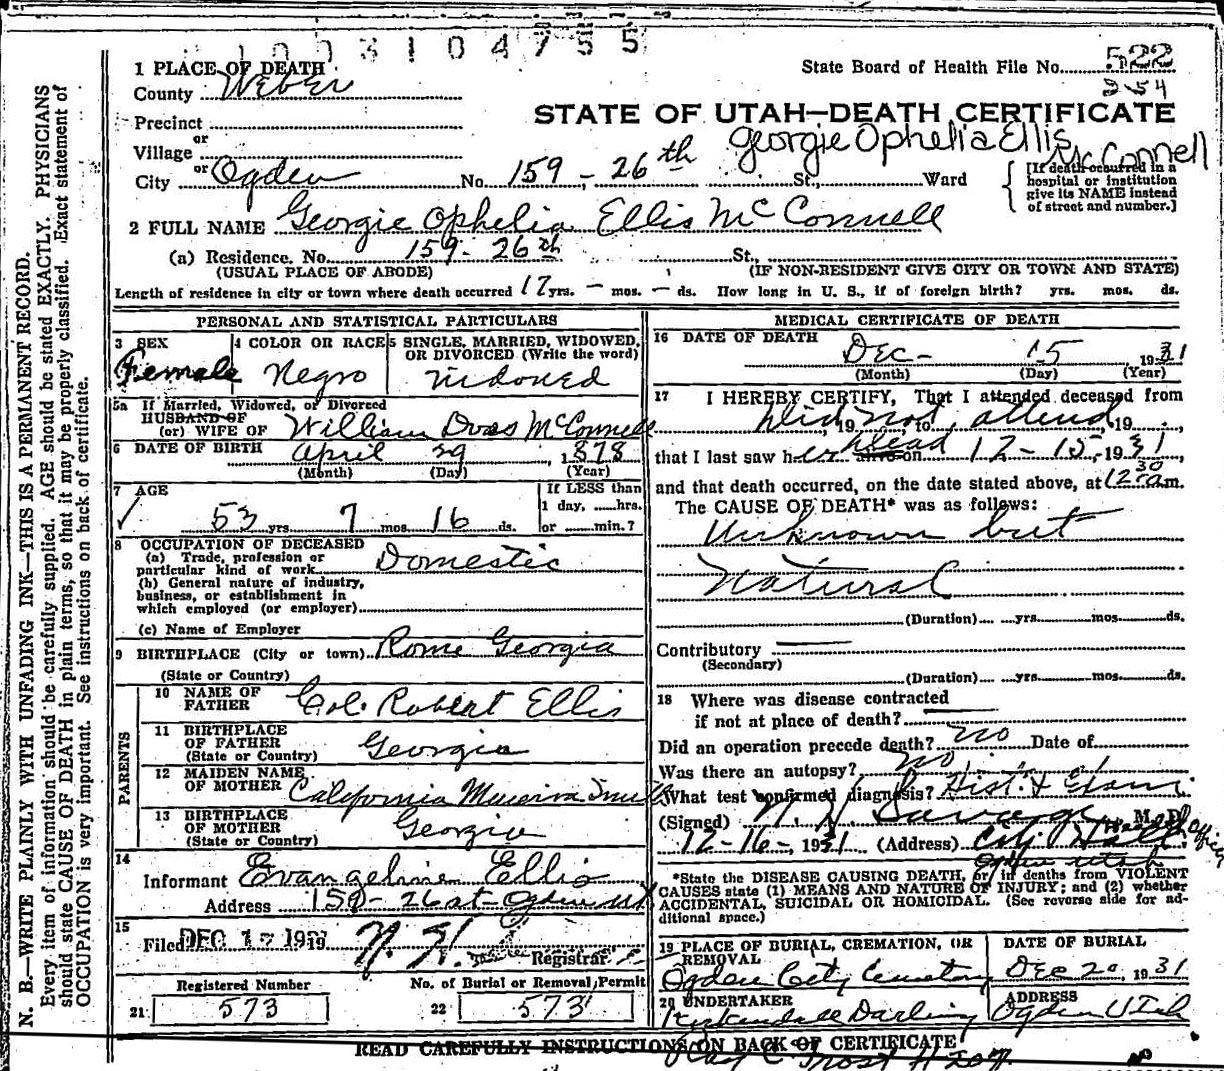 1003104755
State Board of Health File No. 522
254
1 PLACE OF DEATH
County Weber
STATE OF UTAH—DEATH CERTIFICATE
Precinct
or
Village
Georgie Ophelia Ellis McConnell
or
City Ogden No. 159 - 26th St., Ward
[If death occurred in a hospital or institution give its NAME instead of street and number.]
2 FULL NAME Georgie Ophelia Ellis McConnell
(a) Residence. No. 159 - 26th St.,
(USUAL PLACE OF ABODE) (IF NON-RESIDENT GIVE CITY OR TOWN AND STATE)
Length of residence in city or town where death occurred 17 yrs. — mos. — ds. How long in U. S., if of foreign birth? yrs. mos. ds.
PERSONAL AND STATISTICAL PARTICULARS
3 SEX Female
4 COLOR OR RACE Negro
5 SINGLE, MARRIED, WIDOWED, OR DIVORCED (Write the word)
Widowed
5a If Married, Widowed, or Divorced
HUSBAND OF
(or) WIFE OF William Doss McConnell
6 DATE OF BIRTH April 29, 1878
(Month) (Day) (Year)
7 AGE
53 yrs. 7 mos. 16 ds.
If LESS than
1 day, hrs.
or min.?
8 OCCUPATION OF DECEASED
(a) Trade, profession or
particular kind of work Domestic
(b) General nature of industry,
business, or establishment in
which employed (or employer)
(c) Name of Employer
9 BIRTHPLACE (City or town) Rome Georgia
(State or Country)
PARENTS
10 NAME OF FATHER Col. Robert Ellis
11 BIRTHPLACE OF FATHER (State or Country) Georgia
12 MAIDEN NAME OF MOTHER California Minerva Smith
13 BIRTHPLACE OF MOTHER (State or Country) Georgia
14
Informant Evangeline Ellis
Address 159 - 26 st - Ogden Ut
15
Filed DEC 17 1931 19 N. H. Registrar
Registered Number No. of Burial or Removal Permit
21 573 22 573
MEDICAL CERTIFICATE OF DEATH
16 DATE OF DEATH
Dec - 15 1931
(Month) (Day) (Year)
17 I HEREBY CERTIFY, That I attended deceased from
Did not attend, 19 , to , 19 ,
that I last saw her alive on dead 12-15-, 1931,
and that death occurred, on the date stated above, at 12:30 a m.
The CAUSE OF DEATH* was as follows:
Unknown but
Natural
(Duration) yrs. mos. ds.
Contributory
(Secondary)
(Duration) yrs. mos. ds.
18 Where was disease contracted
if not at place of death?
Did an operation precede death? no Date of
Was there an autopsy? no
What test confirmed diagnosis? Hist. & Exam
(Signed) N. H. Savage, M. D.
12-16-, 1931 (Address) City Hall Health Officer
Ogden Utah
*State the DISEASE CAUSING DEATH, or in deaths from VIOLENT
CAUSES state (1) MEANS AND NATURE OF INJURY; and (2) whether
ACCIDENTAL, SUICIDAL OR HOMICIDAL. (See reverse side for additional space.)
19 PLACE OF BURIAL, CREMATION, OR REMOVAL DATE OF BURIAL
Ogden City Cemetery Dec 20, 1931
20 UNDERTAKER ADDRESS
Kirkendall Darling Ogden Utah
READ CAREFULLY INSTRUCTIONS ON BACK OF CERTIFICATE
N. B.—WRITE PLAINLY WITH UNFADING INK—THIS IS A PERMANENT RECORD.
Every item of information should be carefully supplied. AGE should be stated EXACTLY. PHYSICIANS
should state CAUSE OF DEATH in plain terms, so that it may be properly classified. Exact statement of
OCCUPATION is very important. See instructions on back of certificate.